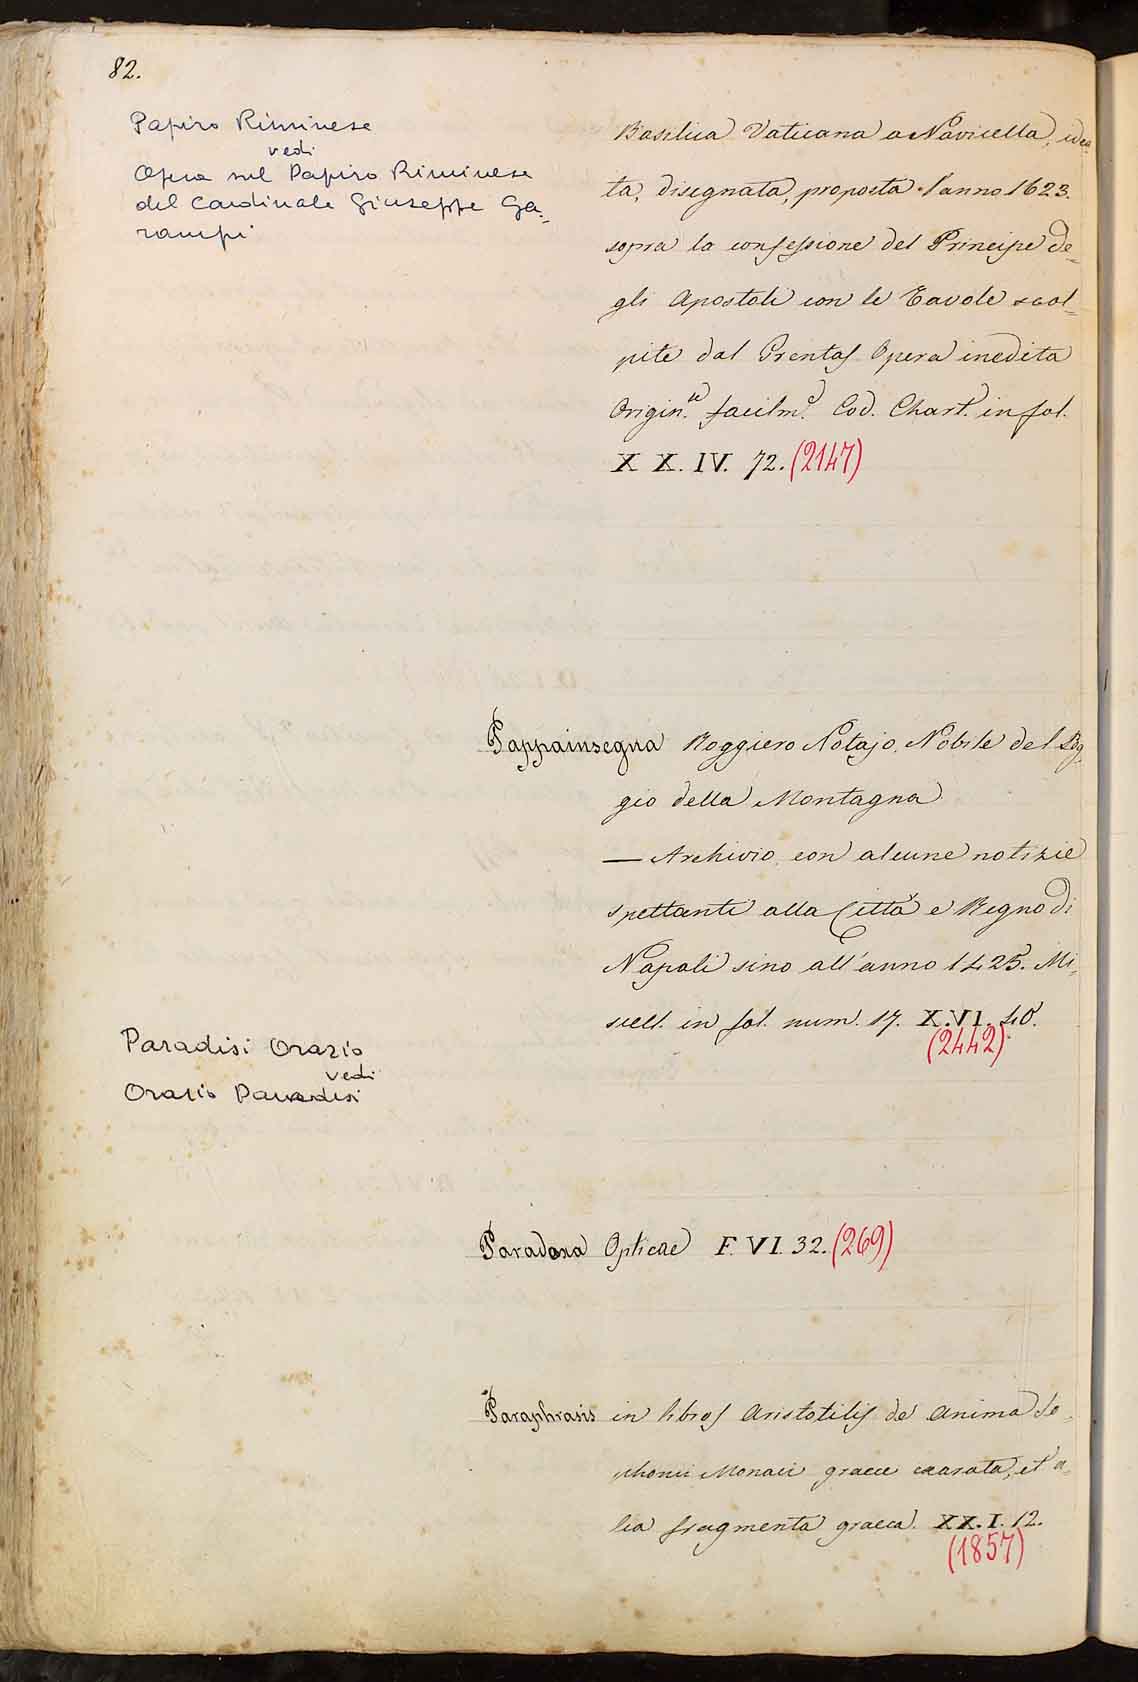 82.
Papiro Riminese
vedi
Opera sul Papiro Riminese
del Cardinale Giuseppe Ga=
rampi
Basilica Vaticana a Navicella, idea
ta, disegnata, proposta l'anno 1623.
sopra la confessione del Principe de=
gli Apostoli con le Tavole scol=
pite dal Grentas Opera inedita
Origin.le facilm.e Cod. Chart. in fol.
X X. IV. 72. (2147)
Pappainsegna Roggiero Notajo, Nobile del Seg
gio della Montagna
— Archivio con alcune notizie
spettanti alla Città e Regno di
Napoli sino all'anno 1425. Mi=
scell. in fol. num. 17. X.VI. 40.
(2442)
Paradisi Orazio
vedi
Orazio Paradisi
Paradoxa Opticae F. VI. 32. (269)
Paraphrasis in libros Aristotilis de Anima So=
phonii Monaci graece exarata, et a=
lia fragmenta graeca. XX. I. 12.
(1857)